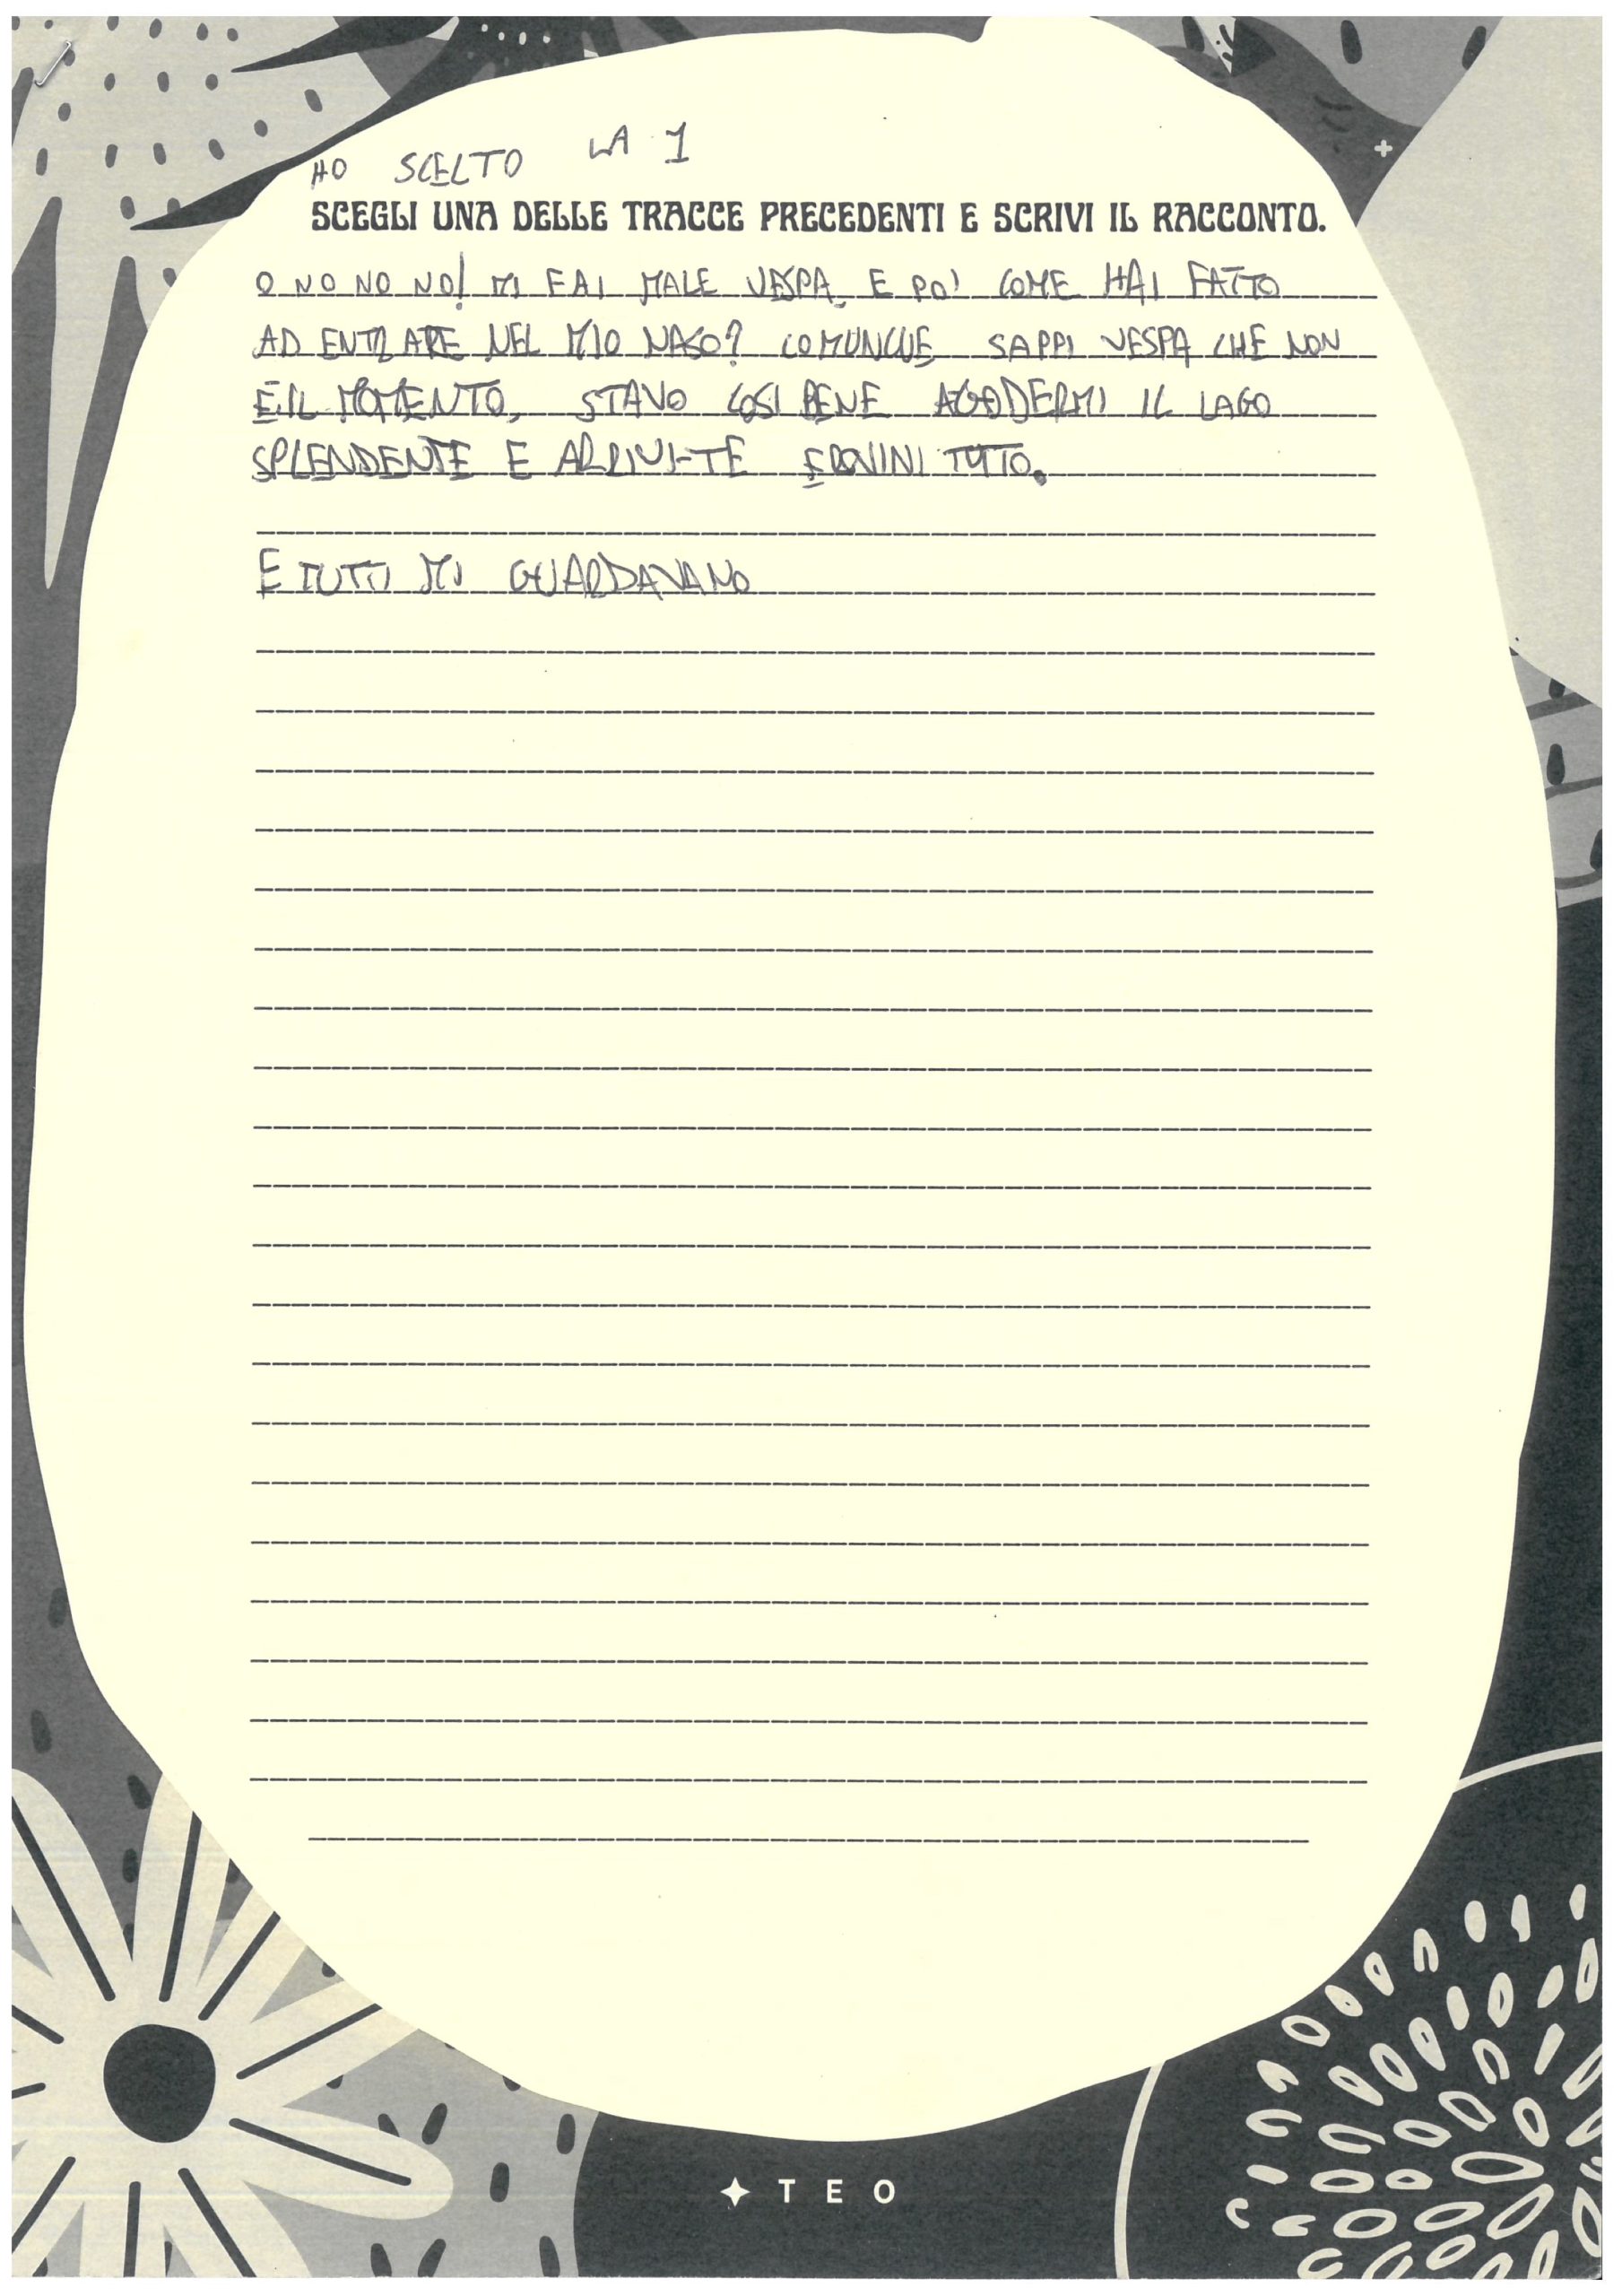 HO SCELTO LA 1
SCEGLI UNA DELLE TRACCE PRECEDENTI E SCRIVI IL RACCONTO.
O NO NO NO! MI FAI MALE VESPA, E POI COME HAI FATTO
AD ENTRARE NEL MIO NASO? COMUNQUE, SAPPI VESPA CHE NON
E IL MOMENTO, STAVO COSI BENE A GODERMI IL LAGO
SPLENDENTE E ARRIVI TE E ROVINI TUTTO.
E TUTTI MI GUARDAVANO
TEO